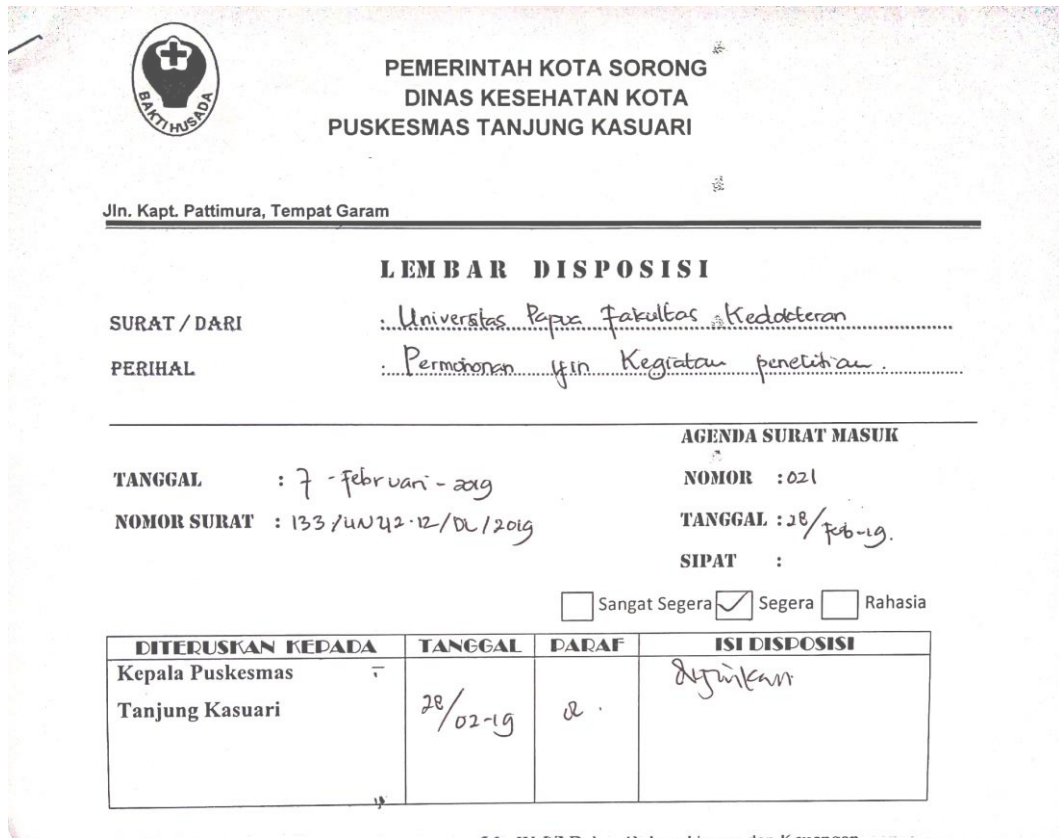 BAKTI HUSADA
PEMERINTAH KOTA SORONG
DINAS KESEHATAN KOTA
PUSKESMAS TANJUNG KASUARI
Jln. Kapt. Pattimura, Tempat Garam
LEMBAR DISPOSISI
SURAT / DARI : Universitas Papua Fakultas Kedokteran
PERIHAL : Permohonan izin Kegiatan penelitian.
AGENDA SURAT MASUK
TANGGAL : 7 - Februari - 2019
NOMOR : 021
NOMOR SURAT : 133/UN42.12/DL/2019
TANGGAL : 28/Feb-19.
SIPAT :
Sangat Segera Segera Rahasia
DITERUSKAN KEPADA TANGGAL PARAF ISI DISPOSISI
Kepala Puskesmas
Tanjung Kasuari 28/02-19